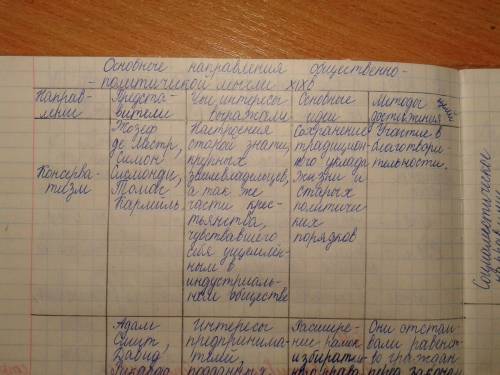 Основные направления общественно-
- политической мысли XIXв
Направ-
ление
Предста-
вители
Чьи интересы
выражали
Основные
идеи
Методы
достижения
цели
Консерва-
тизм
Жозеф
де Местр,
Симон
Сисмонди,
Томас
Карлиль
Настроения
старой знати,
крупных
землевладельцев,
а так же
части крес-
тьянства,
чувствовавшего
себя ущемлён-
ным в
индустриаль-
ном обществе
Сохранение
традицион-
ного уклада
жизни и
старых
политичес-
ких
порядков
Участие в
благотвори-
тельности.
Адам
Смит,
Давид
Рикардо
Интересы
предпринима-
тели,
Расшире-
ние рамок
избират
права
Они отстаи-
вали равенст-
во граждан
перед законом
Социалистические